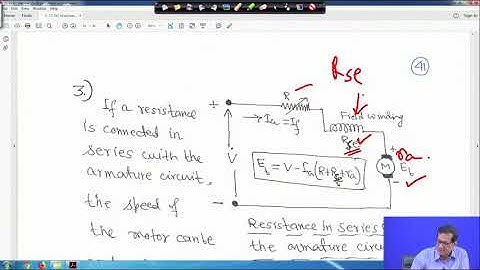 Home
Tools
Sign In
41
3.)
If a resistance
is connected in
series with the
armature circuit,
the speed of
the motor can be
+
V
−
R
Rse
→ Ia = If
Field winding
Rse
E_b = V − Ia(R+Rse+ra)
+
ra
M
E_b
−
Resistance in series
the armature circu